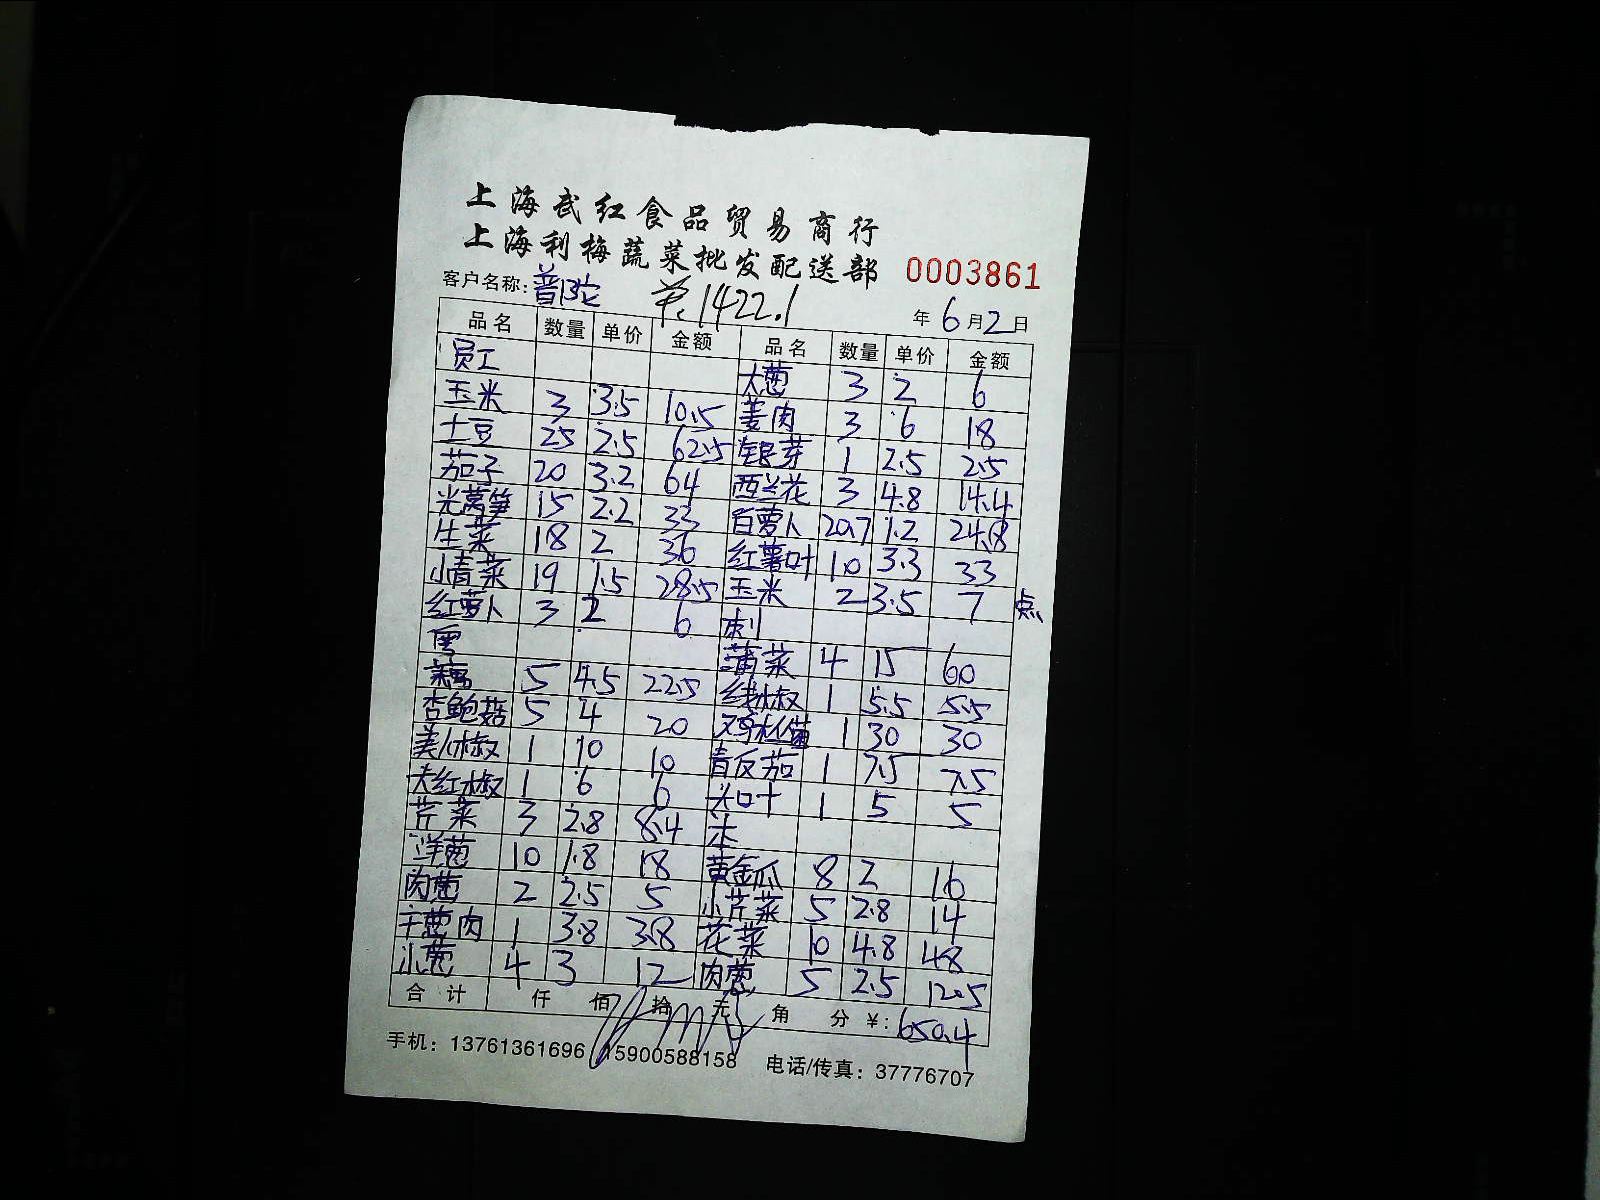 上海武红食品贸易商行
上海利梅蔬菜批发配送部 0003861
客户名称:普陀 ¥:1422.1 年6月2日
品名 数量 单价 金额 品名 数量 单价 金额
员工 大葱 3 2 6
玉米 3 3.5 10.5 姜肉 3 6 18
土豆 25 2.5 62.5 银芽 1 2.5 2.5
茄子 20 3.2 64 西兰花 3 4.8 14.4
光莴笋 15 2.2 33 白萝卜 20.7 1.2 24.8
生菜 18 2 36 红薯叶 10 3.3 33
小青菜 19 1.5 28.5 玉米 2 3.5 7 点
红萝卜 3 2 6 刺
粤 蒲菜 4 15 60
藕 5 4.5 22.5 线椒 1 5.5 5.5
杏鲍菇 5 4 20 鸡枞菌 1 30 30
美人椒 1 10 10 青反茄 1 7.5 7.5
大红椒 1 6 6 1 5 5
芹菜 3 2.8 8.4
洋葱 10 1.8 18 黄金瓜 8 2 16
肉葱 2 2.5 5 小芹菜 5 2.8 14
干葱肉 1 3.8 3.8 花菜 10 4.8 48
小葱 4 3 12 肉葱 5 2.5 12.5
合计 仟 佰 拾 元 角 分 ¥:650.4
手机:13761361696 15900588158 电话/传真:37776707